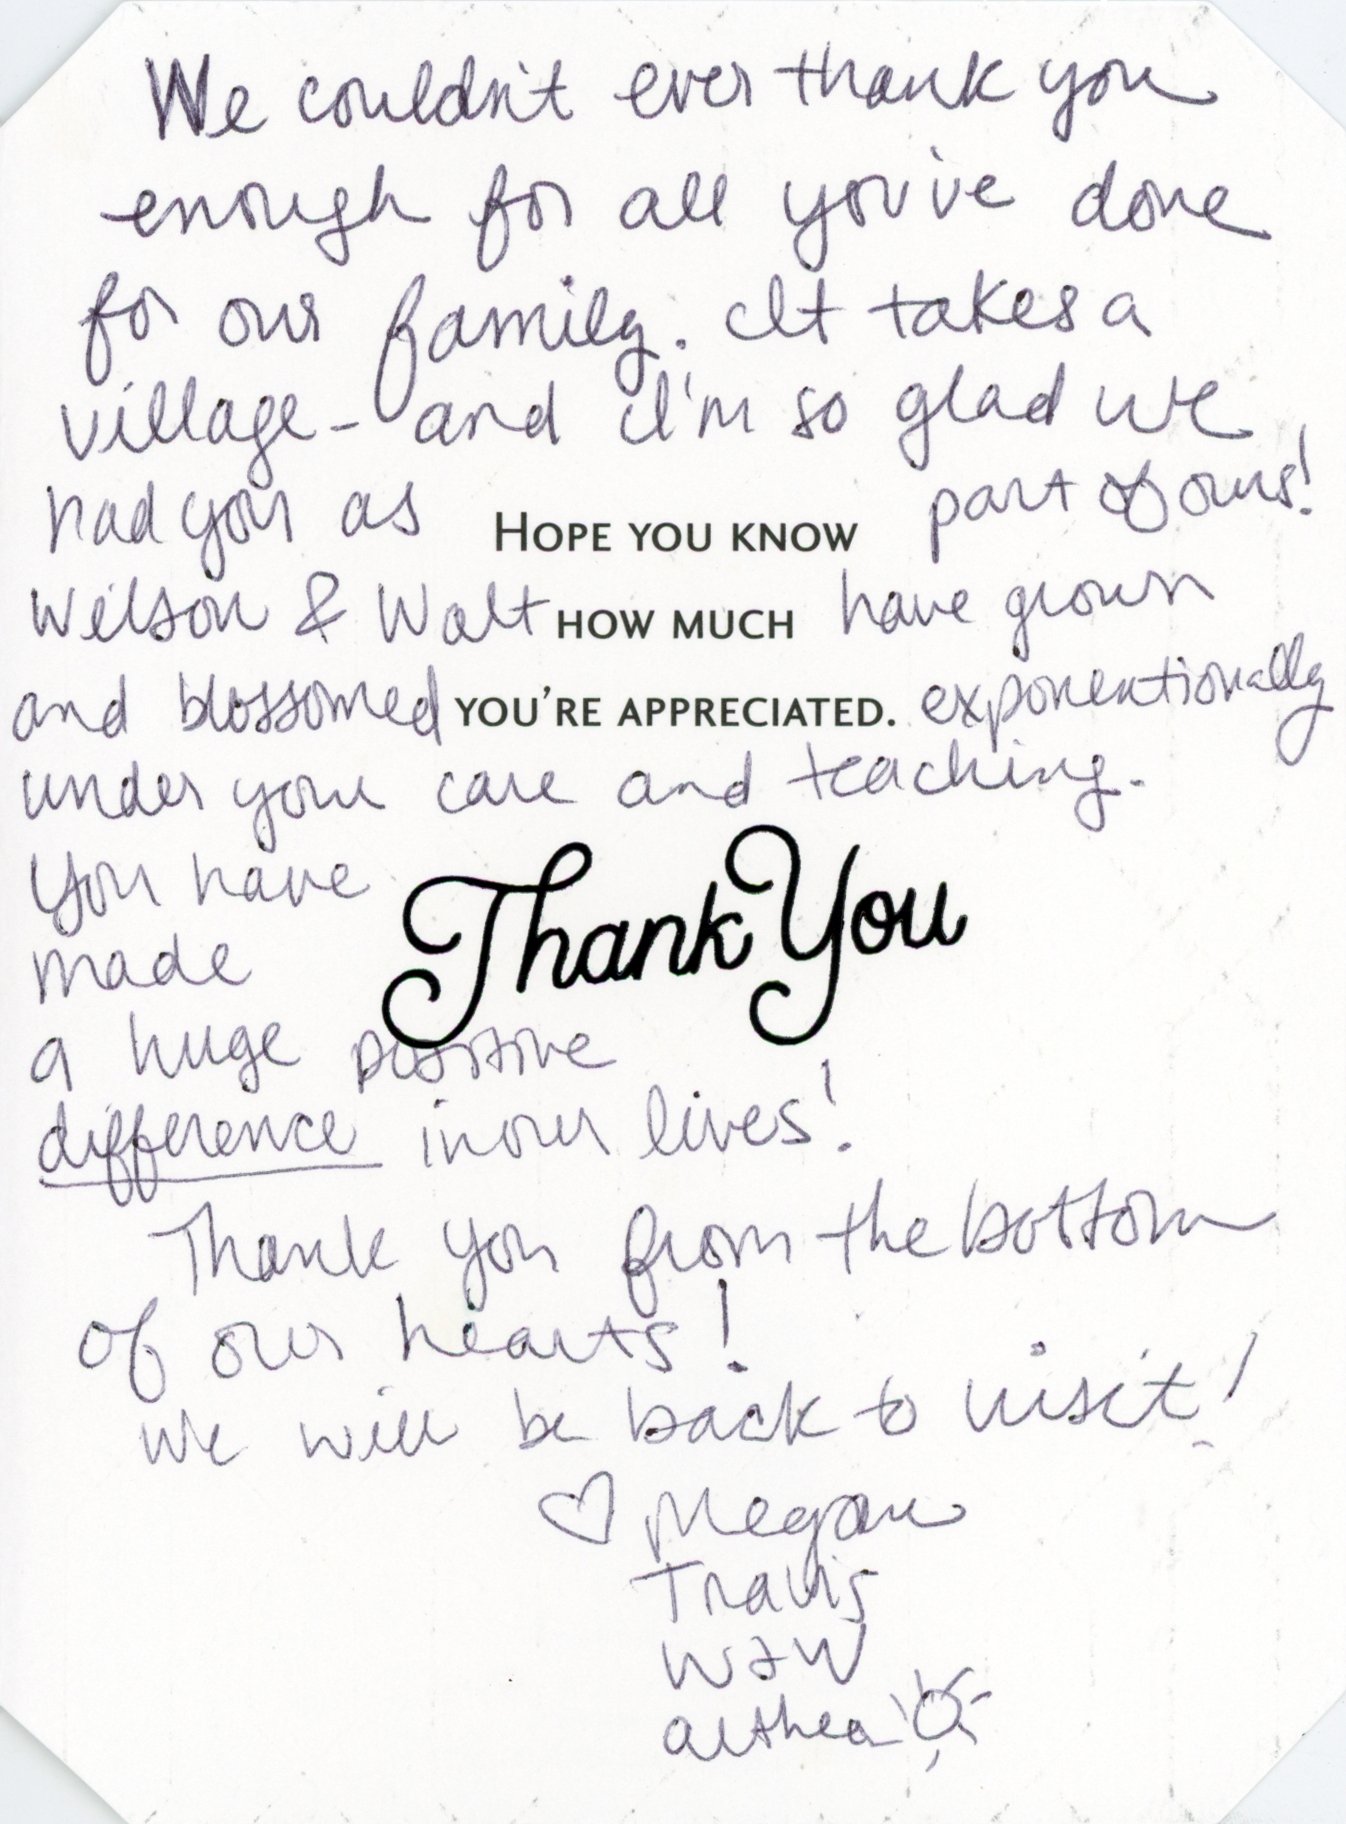 We couldn't ever thank you
enough for all you've done
for our family. It takes a
village - and I'm so glad we
had you as part of ours!
HOPE YOU KNOW
Wilson & Walt have grown
HOW MUCH
and blossomed exponentionally
YOU'RE APPRECIATED.
under your care and teaching.
You have
Thank You
made
a huge positive
difference in our lives!
Thank you from the bottom
of our hearts!
We will be back to visit!
♡ Megan
Travis
W & W
althea